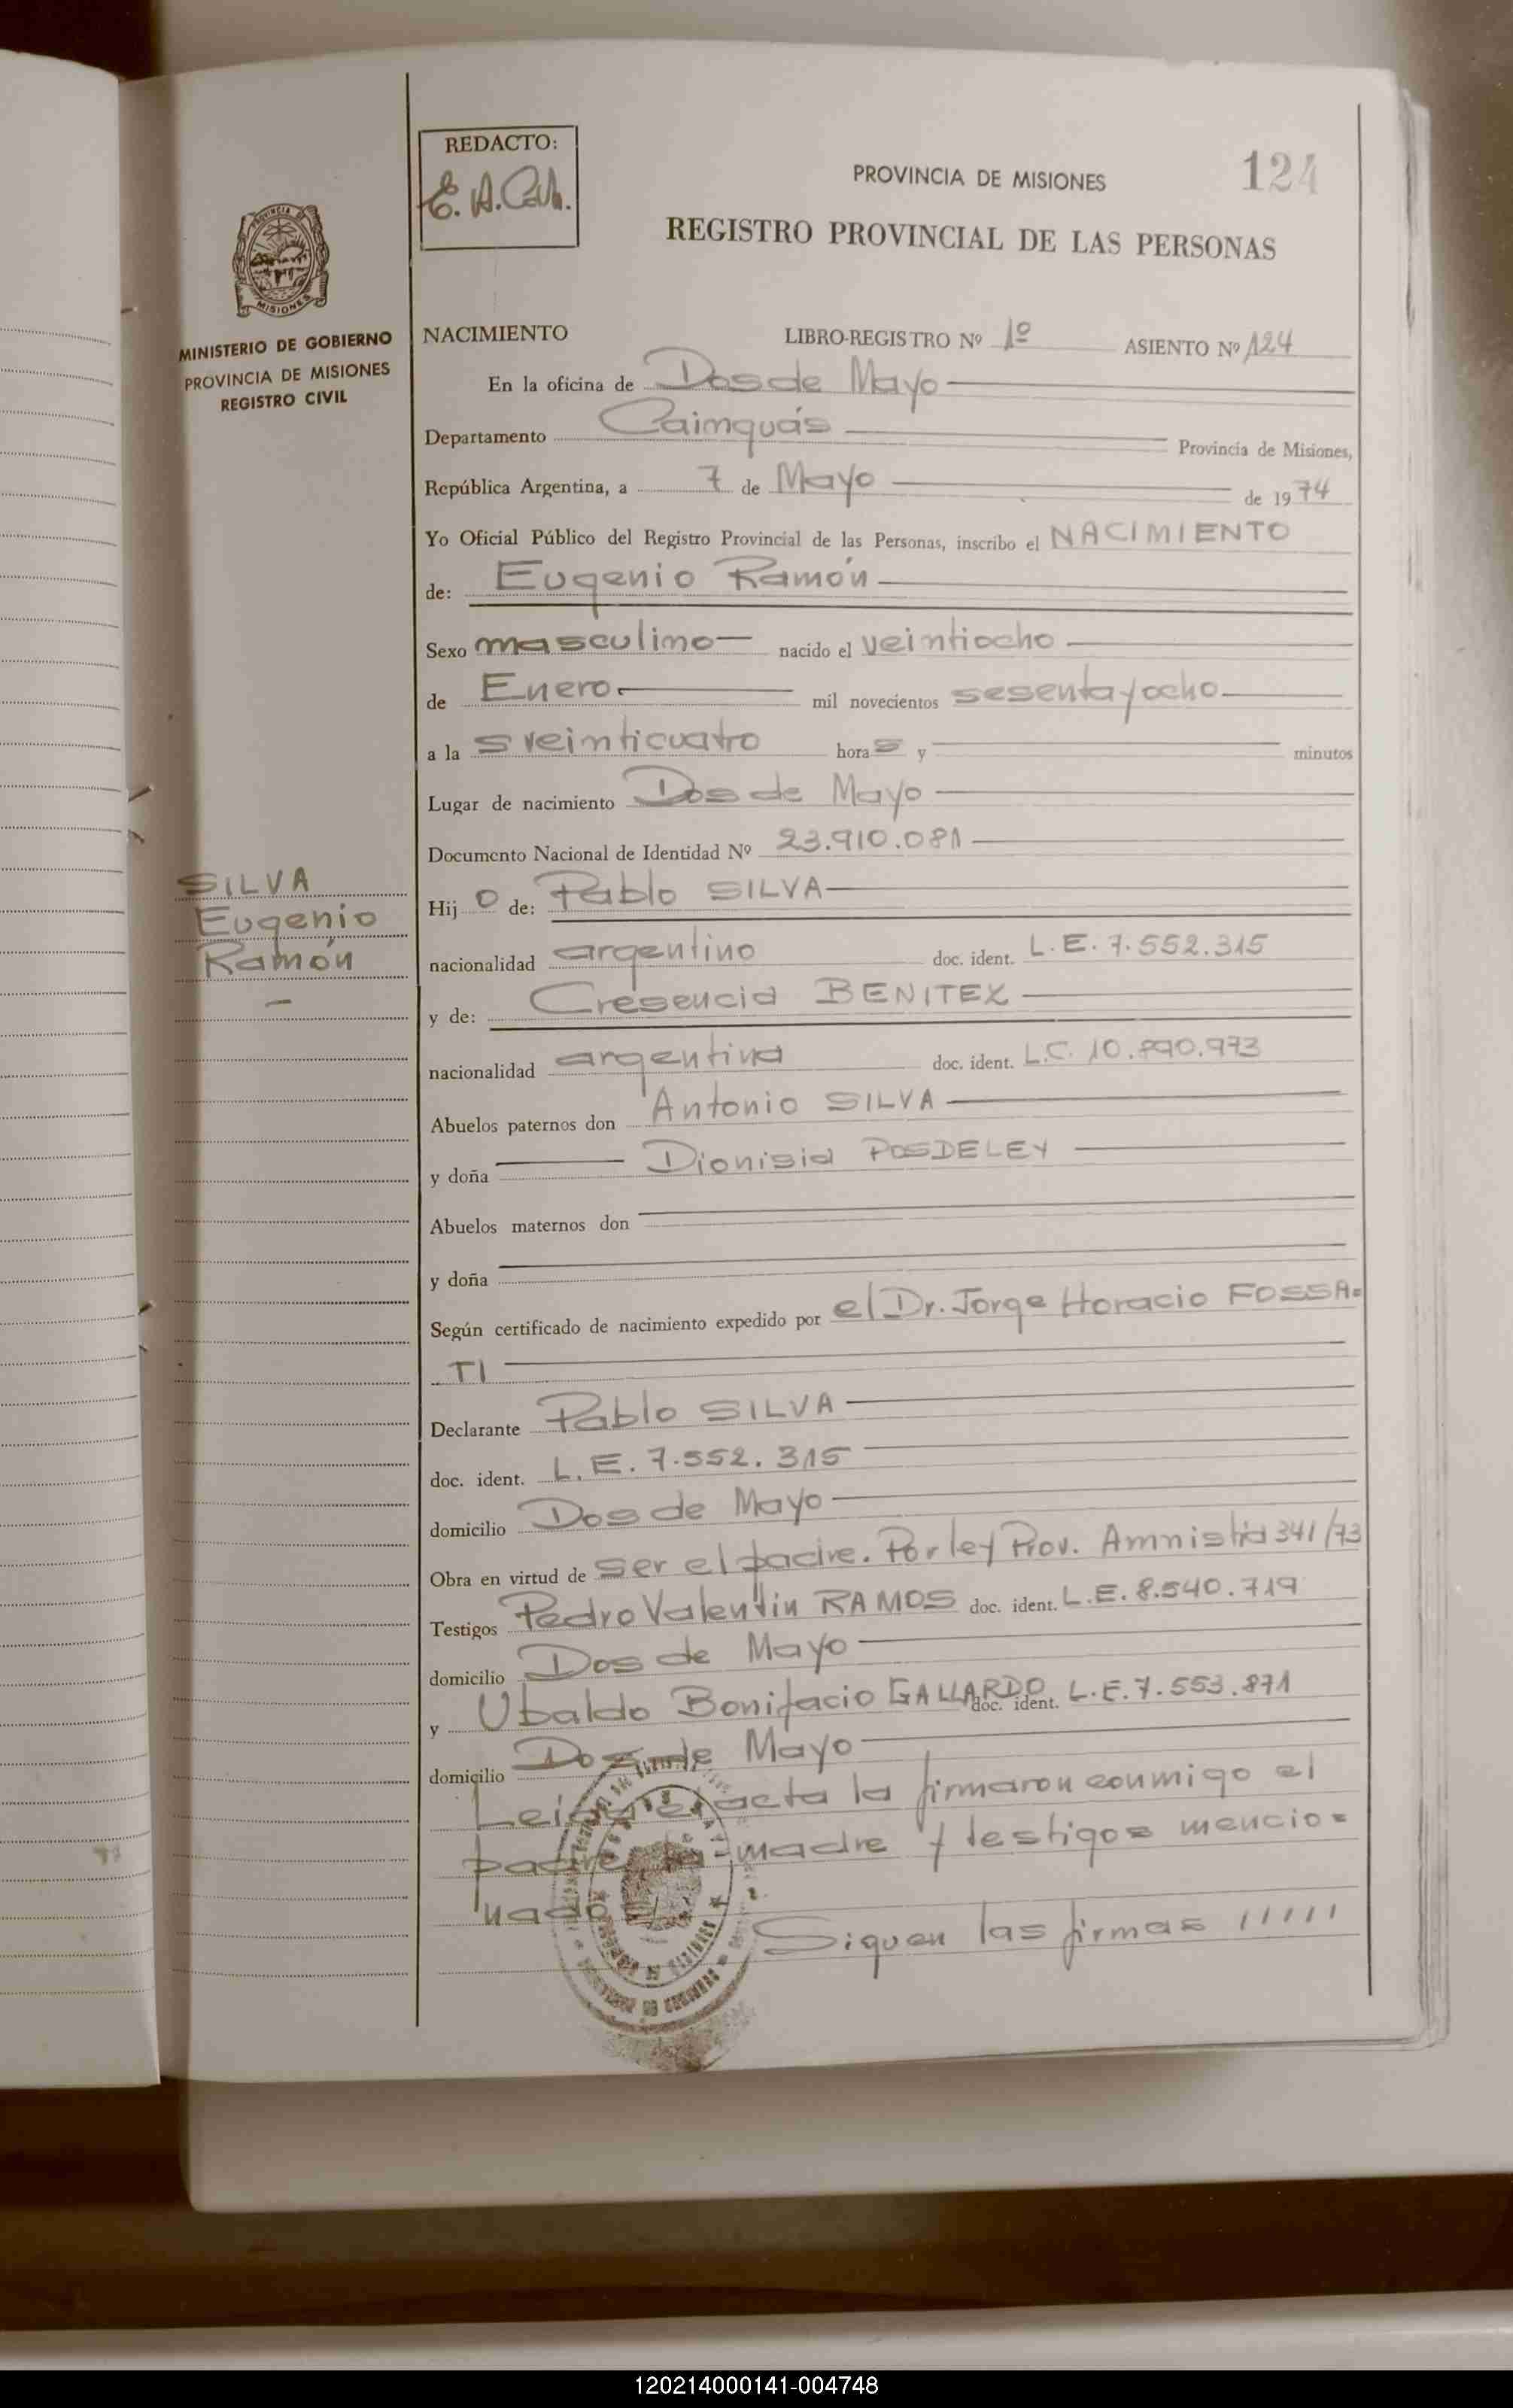 REDACTO:
E. A. Cab.
PROVINCIA DE MISIONES
124
REGISTRO PROVINCIAL DE LAS PERSONAS
MISIONES
MINISTERIO DE GOBIERNO
PROVINCIA DE MISIONES
REGISTRO CIVIL
NACIMIENTO LIBRO-REGISTRO Nº 1º ASIENTO Nº 124
En la oficina de Dos de Mayo
Departamento Caimguás Provincia de Misiones,
República Argentina, a 7 de Mayo de 1974
Yo Oficial Público del Registro Provincial de las Personas, inscribo el NACIMIENTO
de: Eugenio Ramón
Sexo masculino nacido el veintiocho
de Enero mil novecientos sesenta y ocho
a la s veinticuatro horas y minutos
Lugar de nacimiento Dos de Mayo
Documento Nacional de Identidad Nº 23.910.081
SILVA
Eugenio
Ramón
Hijo de: Pablo SILVA
nacionalidad argentino doc. ident. L.E. 7.552.315
y de: Cresencia BENITEZ
nacionalidad argentina doc. ident. L.C. 10.890.973
Abuelos paternos don Antonio SILVA
y doña Dionisia POSDELEY
Abuelos maternos don
y doña
Según certificado de nacimiento expedido por el Dr. Jorge Horacio FOSSA=
TI
Declarante Pablo SILVA
doc. ident. L.E. 7.552.315
domicilio Dos de Mayo
Obra en virtud de ser el padre. Por ley Prov. Amnistia 341/73
Testigos Pedro Valentin RAMOS doc. ident. L.E. 8.540.719
domicilio Dos de Mayo
y Ubaldo Bonifacio GALLARDO doc. ident. L.E. 7.553.871
domicilio Dos de Mayo
Leida el acta la firmaron conmigo el
padre, la madre y testigos mencio=
nados
Siguen las firmas / / / / /
120214000141-004748